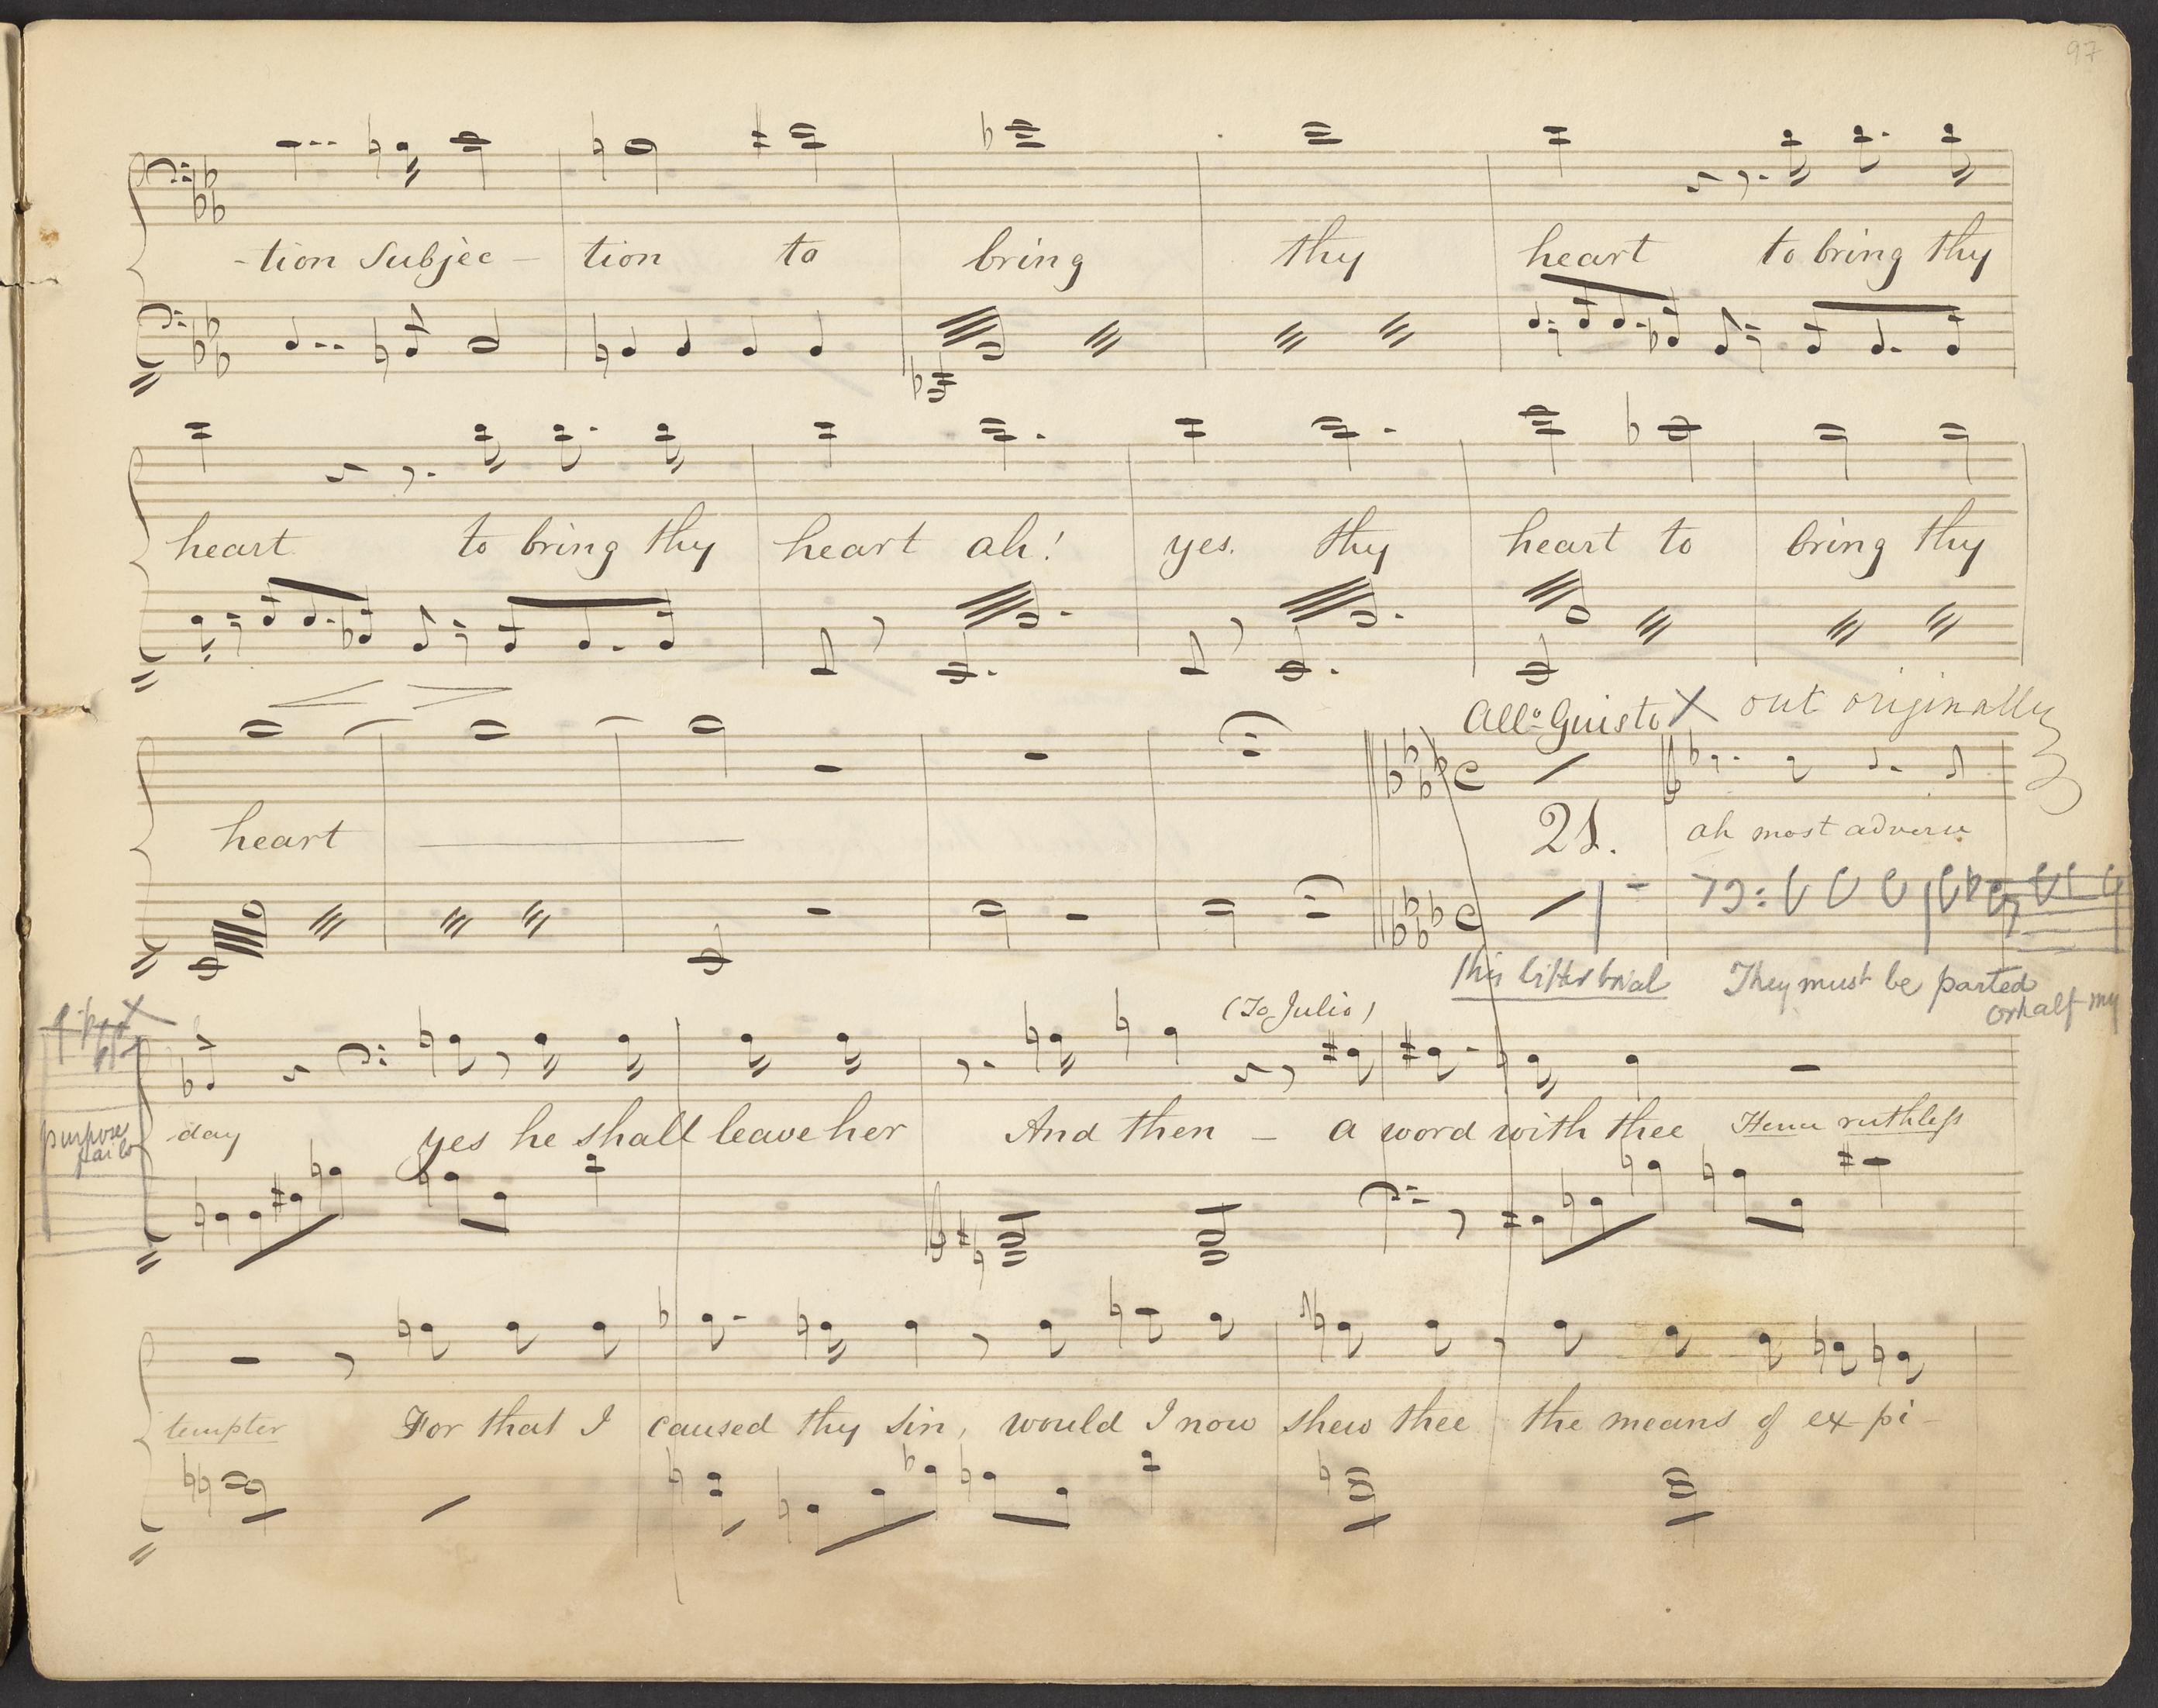 97
-tion Subjec - tion to bring thy heart to bring thy
heart to bring thy heart ah! yes. thy heart to bring thy
Allo Guisto X out originally
heart 21. ah most adverse
This bitter trial They must be parted
or half my
(To Julio)
purpose
fails
day yes he shall leave her And then – a word with thee Hence ruthless
tempter For that I caused thy sin, would I now shew thee the means of ex-pi-